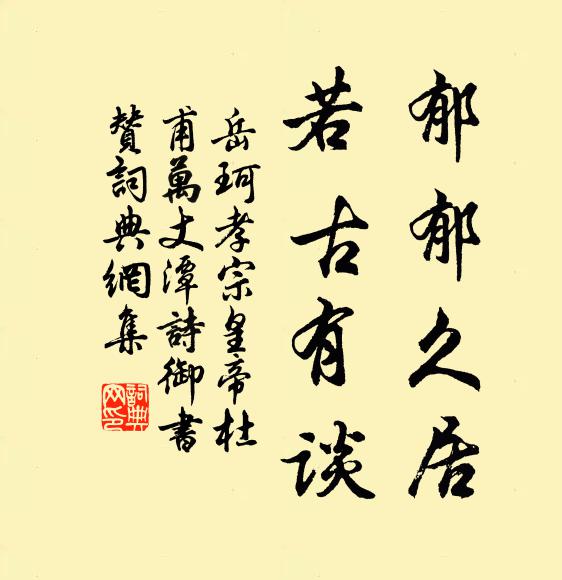 郁郁久居
若古有谈
岳珂孝宗皇帝杜
甫萬丈潭詩御書
贊詞典網集
詞典
网印